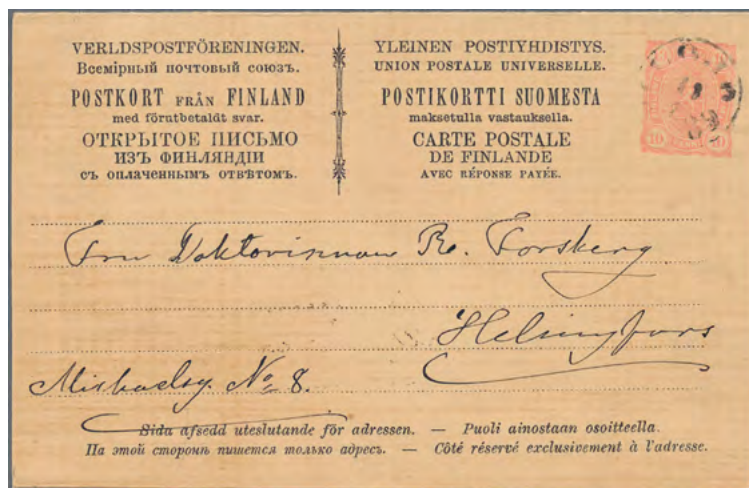 VERLDSPOSTFÖRENINGEN.
Всемірный почтовый союзъ.
POSTKORT FRÅN FINLAND
med förutbetaldt svar.
ОТКРЫТОЕ ПИСЬМО
ИЗЪ ФИНЛЯНДІИ
съ оплаченнымъ отвѣтомъ.
YLEINEN POSTIYHDISTYS.
UNION POSTALE UNIVERSELLE.
POSTIKORTTI SUOMESTA
maksetulla vastauksella.
CARTE POSTALE
DE FINLANDE
AVEC RÉPONSE PAYÉE.
10 10
Fru Doktorinnan R. Forsberg
Helsingfors
Michaelsg. No 8.
Sida afsedd uteslutande för adressen. — Puoli ainostaan osoitteella.
На этой сторонѣ пишется только адресъ. — Côté réservé exclusivement à l'adresse.